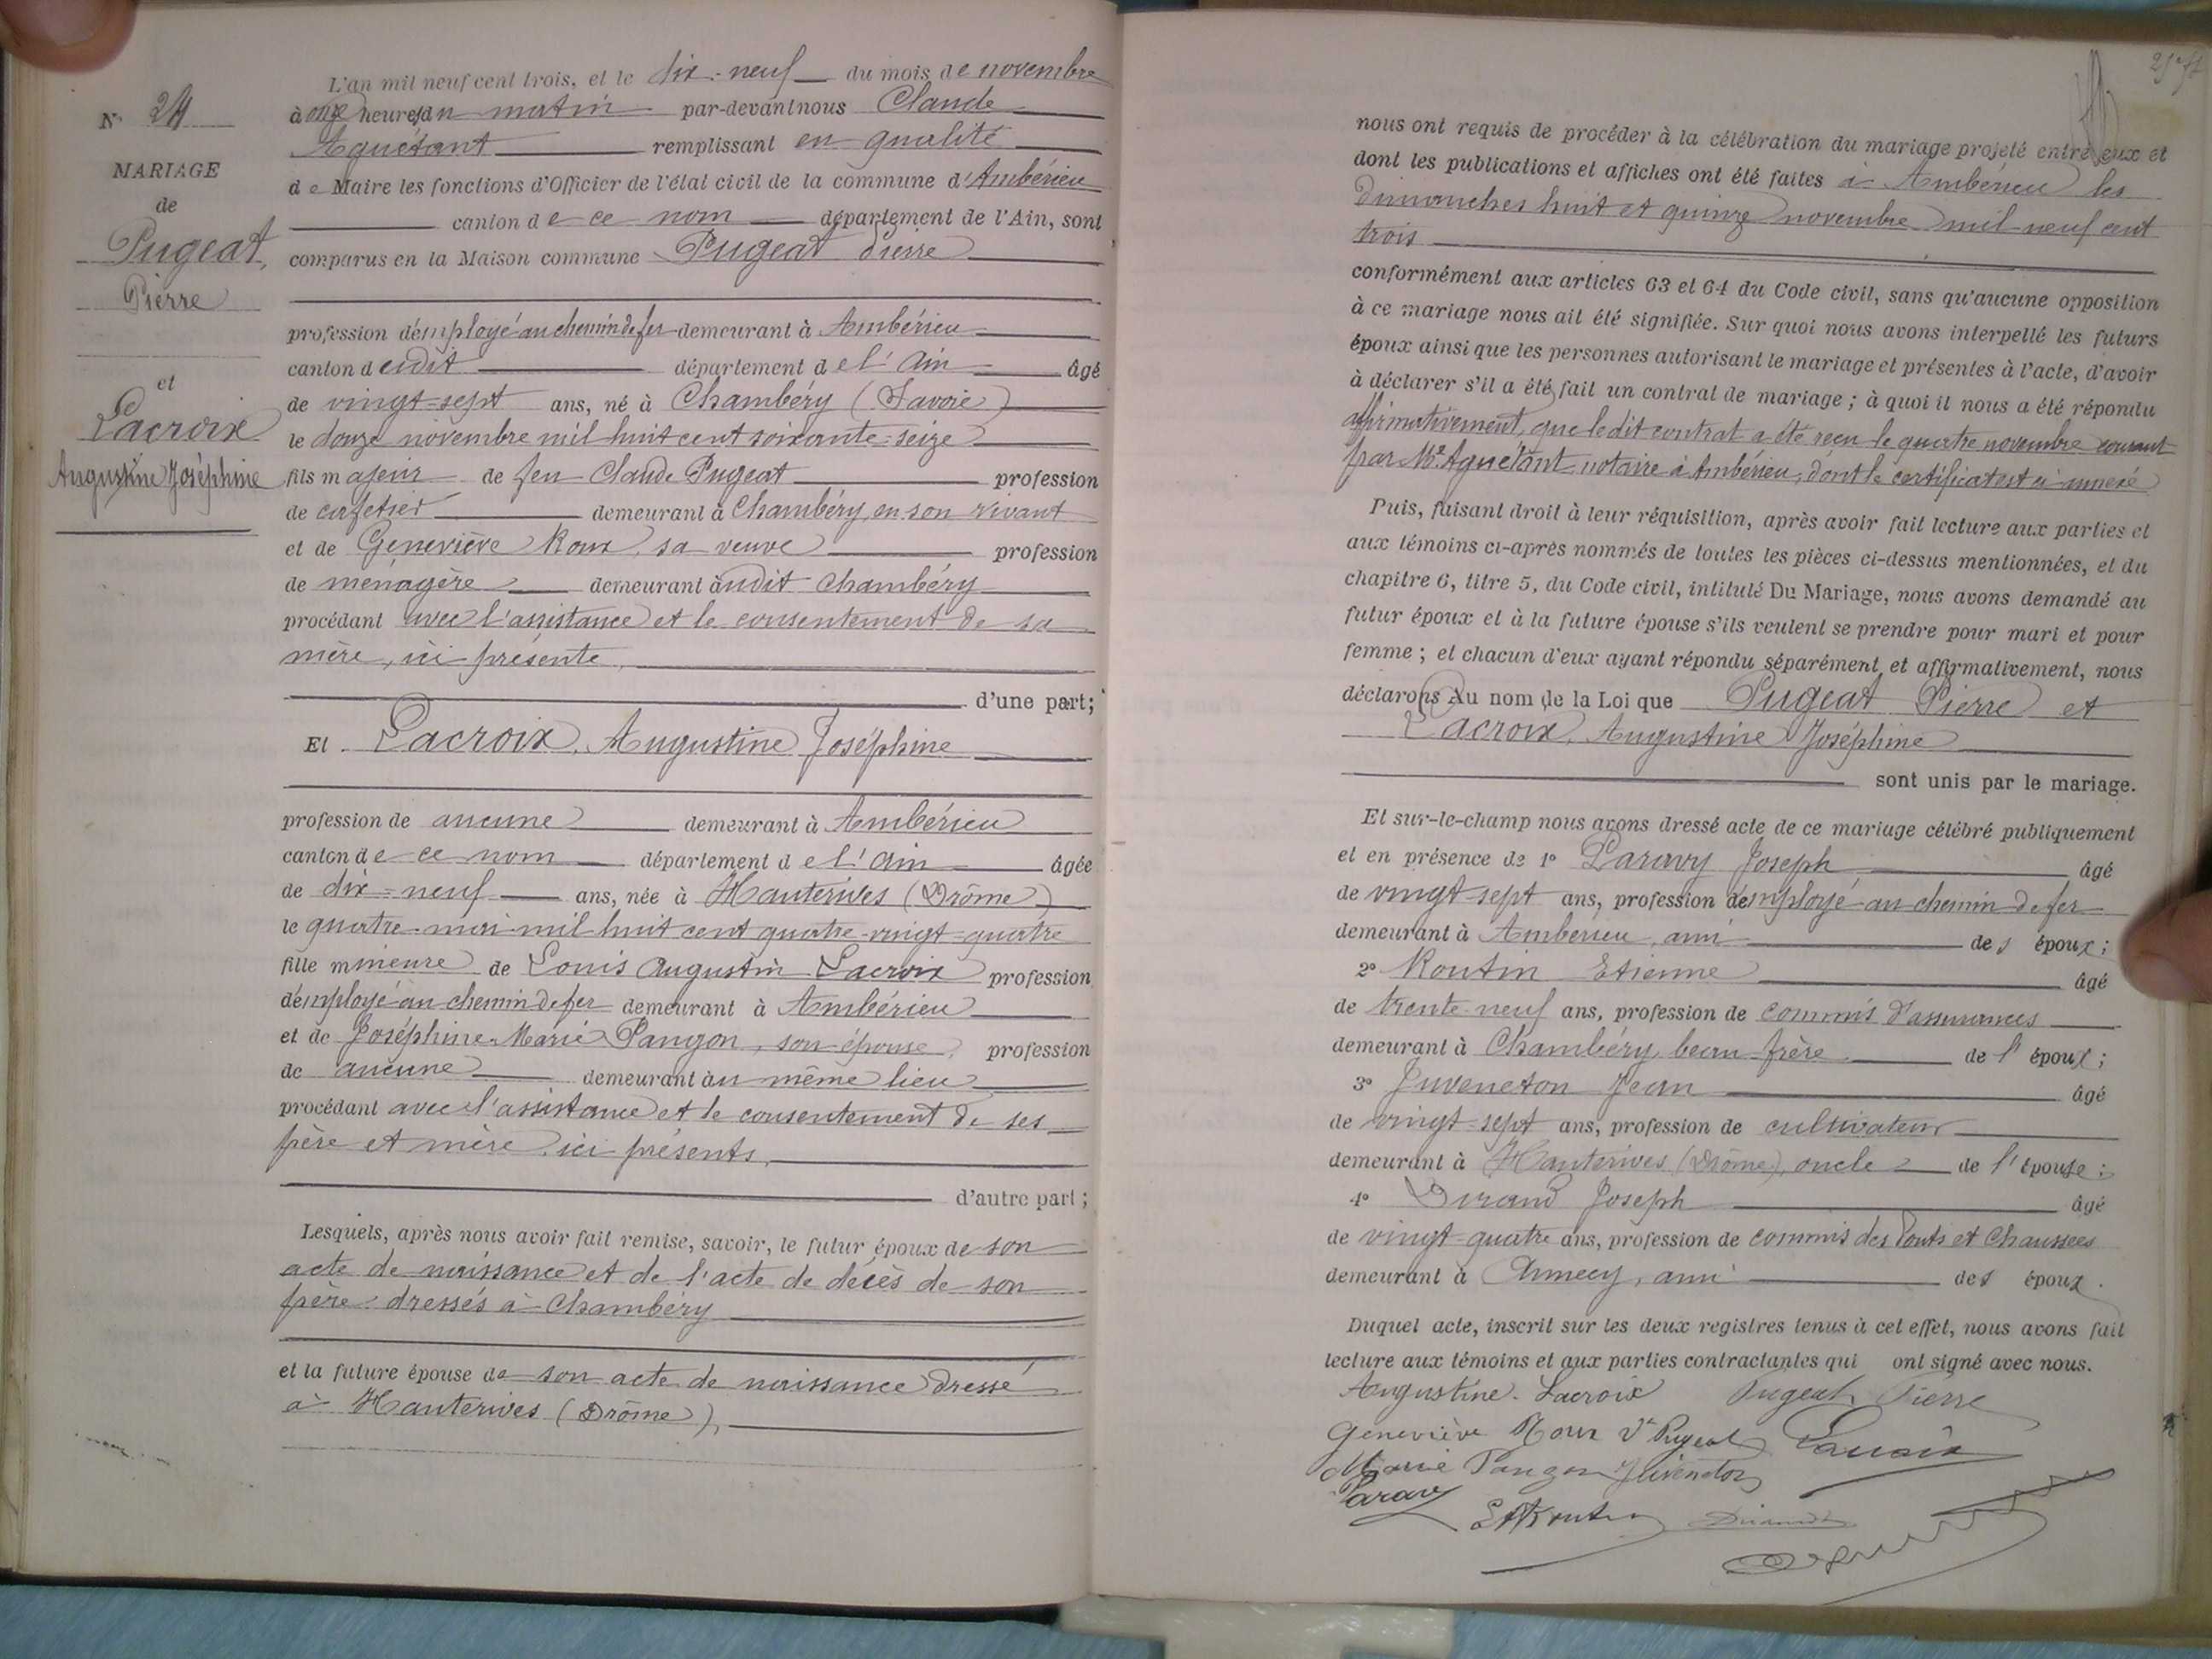 N° 24
MARIAGE
de
Pugeat,
Pierre
et
Lacroix
Augustine Joséphine
L'an mil neuf cent trois, et le dix-neuf du mois de novembre
à onze heures du matin par-devant nous Claude
Aguétant remplissant en qualité
de Maire les fonctions d'Officier de l'état civil de la commune d'Ambérieu
canton de ce nom département de l'Ain, sont
comparus en la Maison commune Pugeat Pierre
profession d'employé au chemin de fer demeurant à Ambérieu
canton dudit département de l'Ain âgé
de vingt-sept ans, né à Chambéry (Savoie)
le douze novembre mil huit cent soixante-seize
fils majeur de feu Claude Pugeat profession
de cafetier demeurant à Chambéry, en son vivant
et de Geneviève Roux, sa veuve profession
de ménagère demeurant audit Chambéry
procédant avec l'assistance et le consentement de sa
mère, ici présente,
d'une part;
Et Lacroix, Augustine Joséphine
profession de aucune demeurant à Ambérieu
canton de ce nom département de l'Ain âgée
de dix-neuf ans, née à Hauterives (Drôme)
le quatre mai mil huit cent quatre-vingt-quatre
fille mineure de Louis Augustin Lacroix profession
d'employé au chemin de fer demeurant à Ambérieu
et de Joséphine Marie Pangon, son épouse, profession
de aucune demeurant au même lieu
procédant avec l'assistance et le consentement de ses
père et mère, ici présents,
d'autre part;
Lesquels, après nous avoir fait remise, savoir, le futur époux de son
acte de naissance et de l'acte de décès de son
père dressés à Chambéry
et la future épouse de son acte de naissance dressé
à Hauterives (Drôme),
nous ont requis de procéder à la célébration du mariage projeté entre eux et
dont les publications et affiches ont été faites à Ambérieu les
dimanches huit et quinze novembre mil neuf cent
trois
conformément aux articles 63 et 64 du Code civil, sans qu'aucune opposition
à ce mariage nous ait été signifiée. Sur quoi nous avons interpellé les futurs
époux ainsi que les personnes autorisant le mariage et présentes à l'acte, d'avoir
à déclarer s'il a été fait un contrat de mariage; à quoi il nous a été répondu
affirmativement, que le dit contrat a été reçu le quatre novembre courant
par Me Aguétant notaire à Ambérieu, dont le certificat est ci-annexé
Puis, faisant droit à leur réquisition, après avoir fait lecture aux parties et
aux témoins ci-après nommés de toutes les pièces ci-dessus mentionnées, et du
chapitre 6, titre 5, du Code civil, intitulé Du Mariage, nous avons demandé au
futur époux et à la future épouse s'ils veulent se prendre pour mari et pour
femme; et chacun d'eux ayant répondu séparément et affirmativement, nous
déclarons Au nom de la Loi que Pugeat Pierre et
Lacroix, Augustine Joséphine
sont unis par le mariage.
Et sur-le-champ nous avons dressé acte de ce mariage célébré publiquement
et en présence de 1° Paravy Joseph âgé
de vingt-sept ans, profession d'employé au chemin de fer
demeurant à Ambérieu, ami des époux;
2° Routin Etienne âgé
de trente-neuf ans, profession de commis d'assurances
demeurant à Chambéry, beau-frère de l'époux;
3° Juveneton Jean âgé
de vingt-sept ans, profession de cultivateur
demeurant à Hauterives (Drôme), oncle de l'épouse;
4° Durand Joseph âgé
de vingt-quatre ans, profession de commis des Ponts et Chaussées
demeurant à Annecy, ami des époux.
Duquel acte, inscrit sur les deux registres tenus à cet effet, nous avons fait
lecture aux témoins et aux parties contractantes qui ont signé avec nous.
Augustine Lacroix Pugeat Pierre
Geneviève Roux Ve Pugeat Lacroix
Marie Pangon Juveneton
Paravy
E Routin Durand